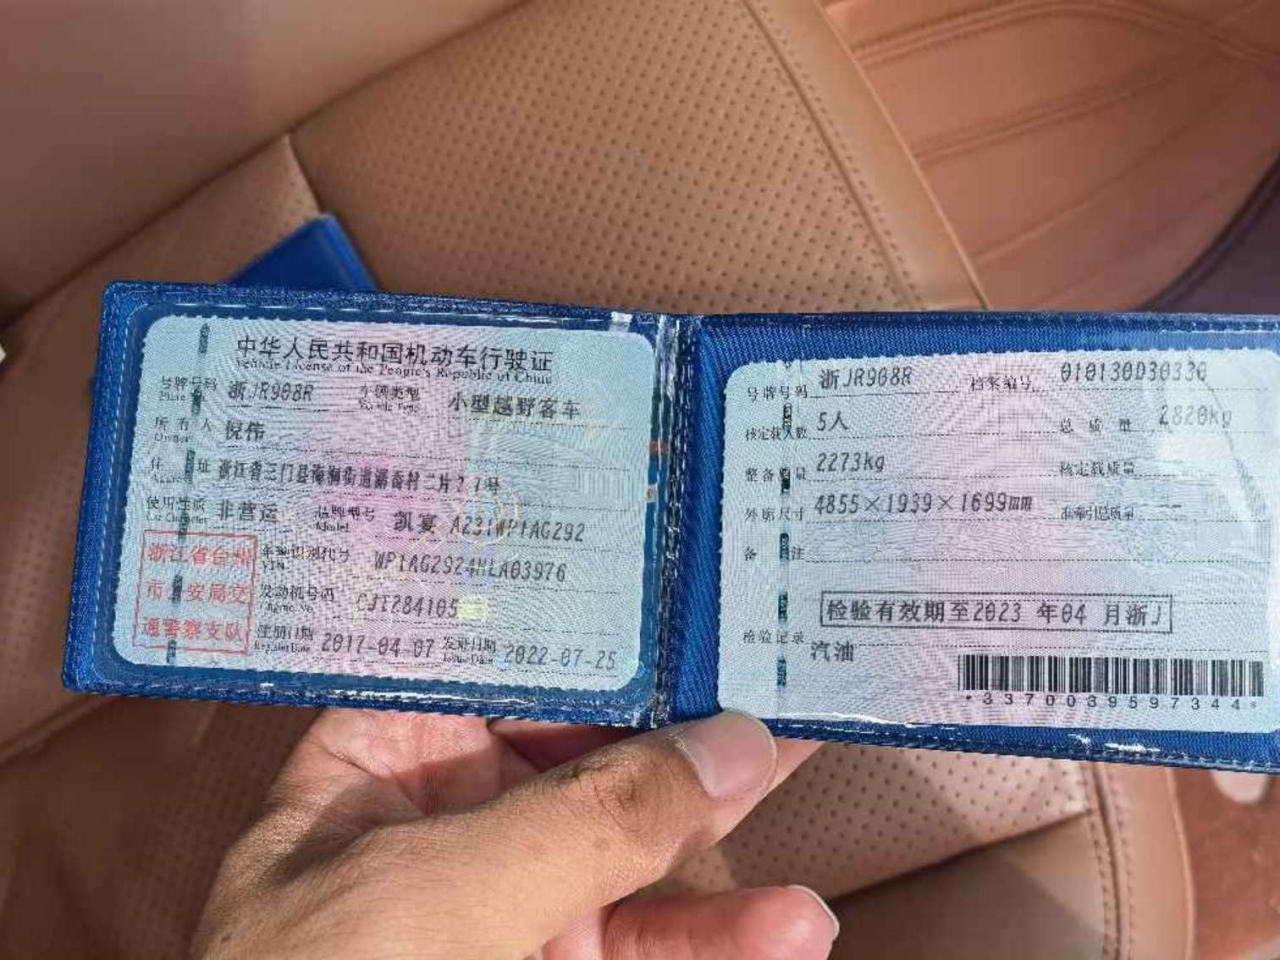 中华人民共和国机动车行驶证
Vehicle License of the People's Republic of China
号牌号码 浙JR908R 车辆类型 小型越野客车
所有人 倪伟
Owner
住址 浙江省三门县海润街道潘岙村二片27号
使用性质 非营运 品牌型号 凯宴 A231WP1AG292
Use Character Model
浙江省台州
市公安局交
通警察支队
车辆识别代号 WP1AG2924HLA03976
VIN
发动机号码 CJT284105
Engine No.
注册日期 2017-04-07 发证日期 2022-07-25
Register Date Issue Date
号牌号码 浙JR908R 档案编号 010130D30330
核定载人数 5人 总质量 2820kg
整备质量 2273kg 核定载质量
外廓尺寸 4855×1939×1699mm 准牵引总质量 --
备注
检验有效期至2023 年04 月浙J
检验记录
汽油
*3370039597344*